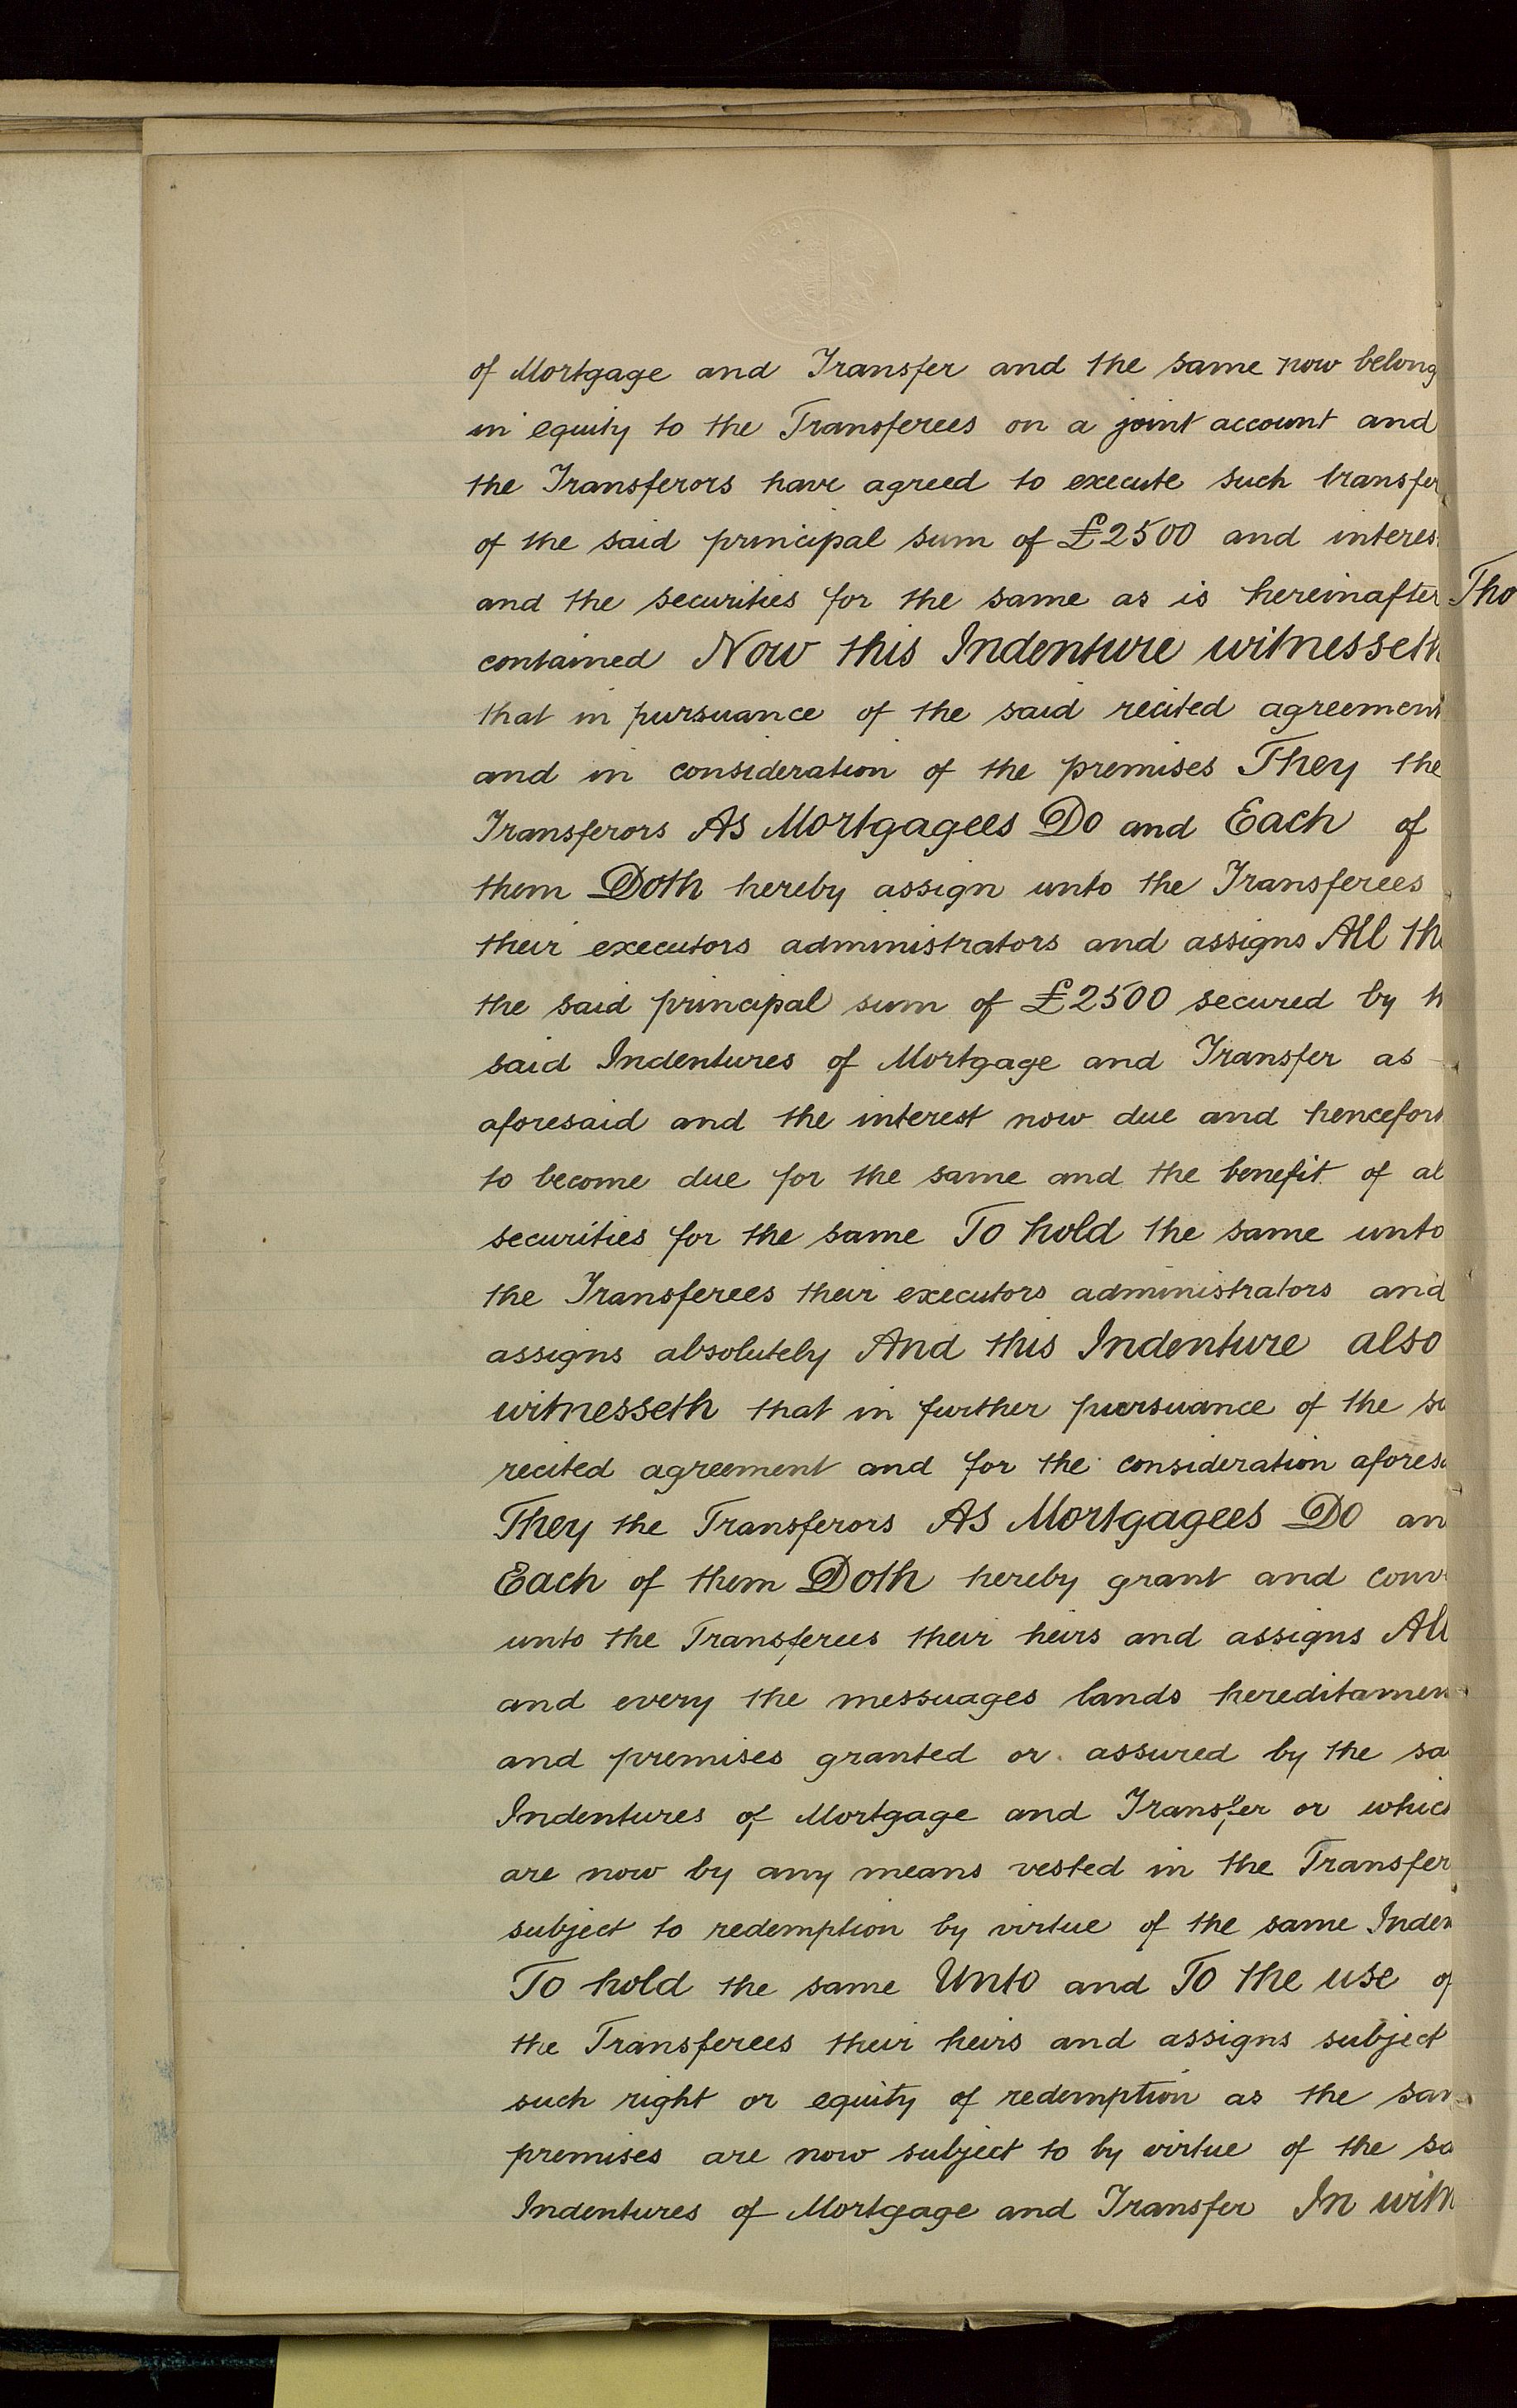 of Mortgage and Transfer and the same now belong
in equity to the Transferees on a joint account and
the Transferors have agreed to execute such transfer
of the said principal sum of £2500 and interes
and the securities for the same as is hereinafter
contained Now this Indenture witnesseth
that in pursuance of the said recited agreement
and in consideration of the premises They the
Transferors As Mortgagees Do and Each of
them Doth hereby assign unto the Transferees
their executors administrators and assigns All th
the said principal sum of £2500 secured by
said Indentures of Mortgage and Transfer as
aforesaid and the interest now due and hencefort
to become due for the same and the benefit of al
securities for the same To hold the same unto
the Transferees their executors administrators and
assigns absolutely And this Indenture also
witnesseth that in further pursuance of the
recited agreement and for the consideration afores
They the Transferors As Mortgagees Do an
Each of them Doth hereby grant and conv
unto the Transferees their heirs and assigns All
and every the messuages lands hereditamen
and premises granted or assured by the sa
Indentures of Mortgage and Transfer or which
are now by any means vested in the Transfer
subject to redemption by virtue of the same Inden
To hold the same Unto and To the use of
the Transferees their heirs and assigns subject
such right or equity of redemption as the sam
premises are now subject to by virtue of the sa
Indentures of Mortgage and Transfer In witn
Tho